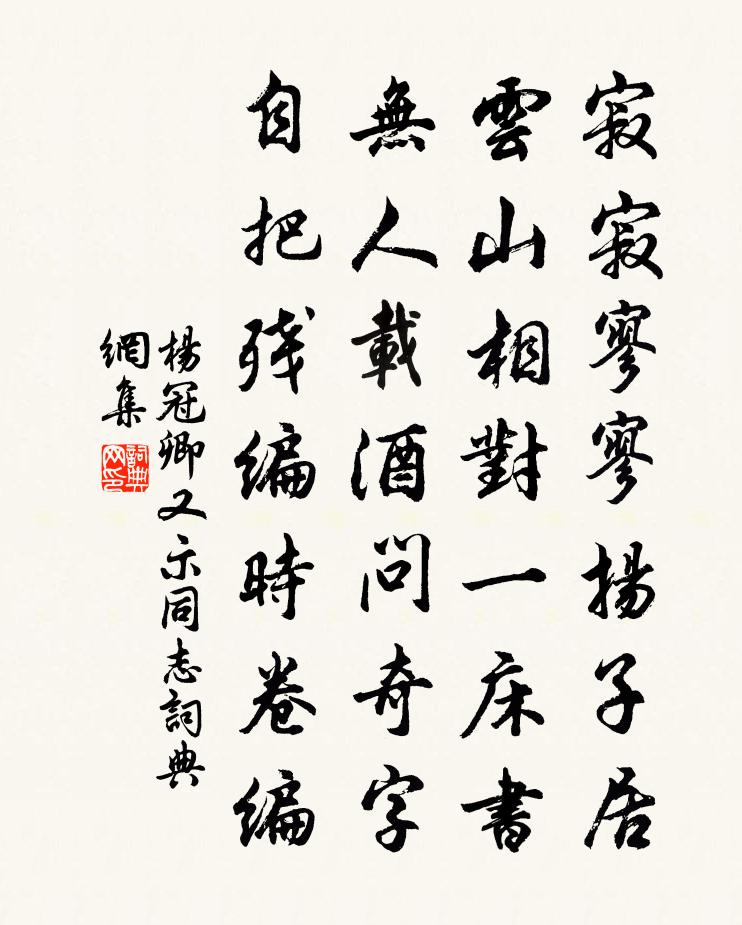 寂寂寥寥揚子居
雲山相對一床書
無人載酒問奇字
自把残编時卷编
楊冠卿又示同志詞典
網集
詞典网印